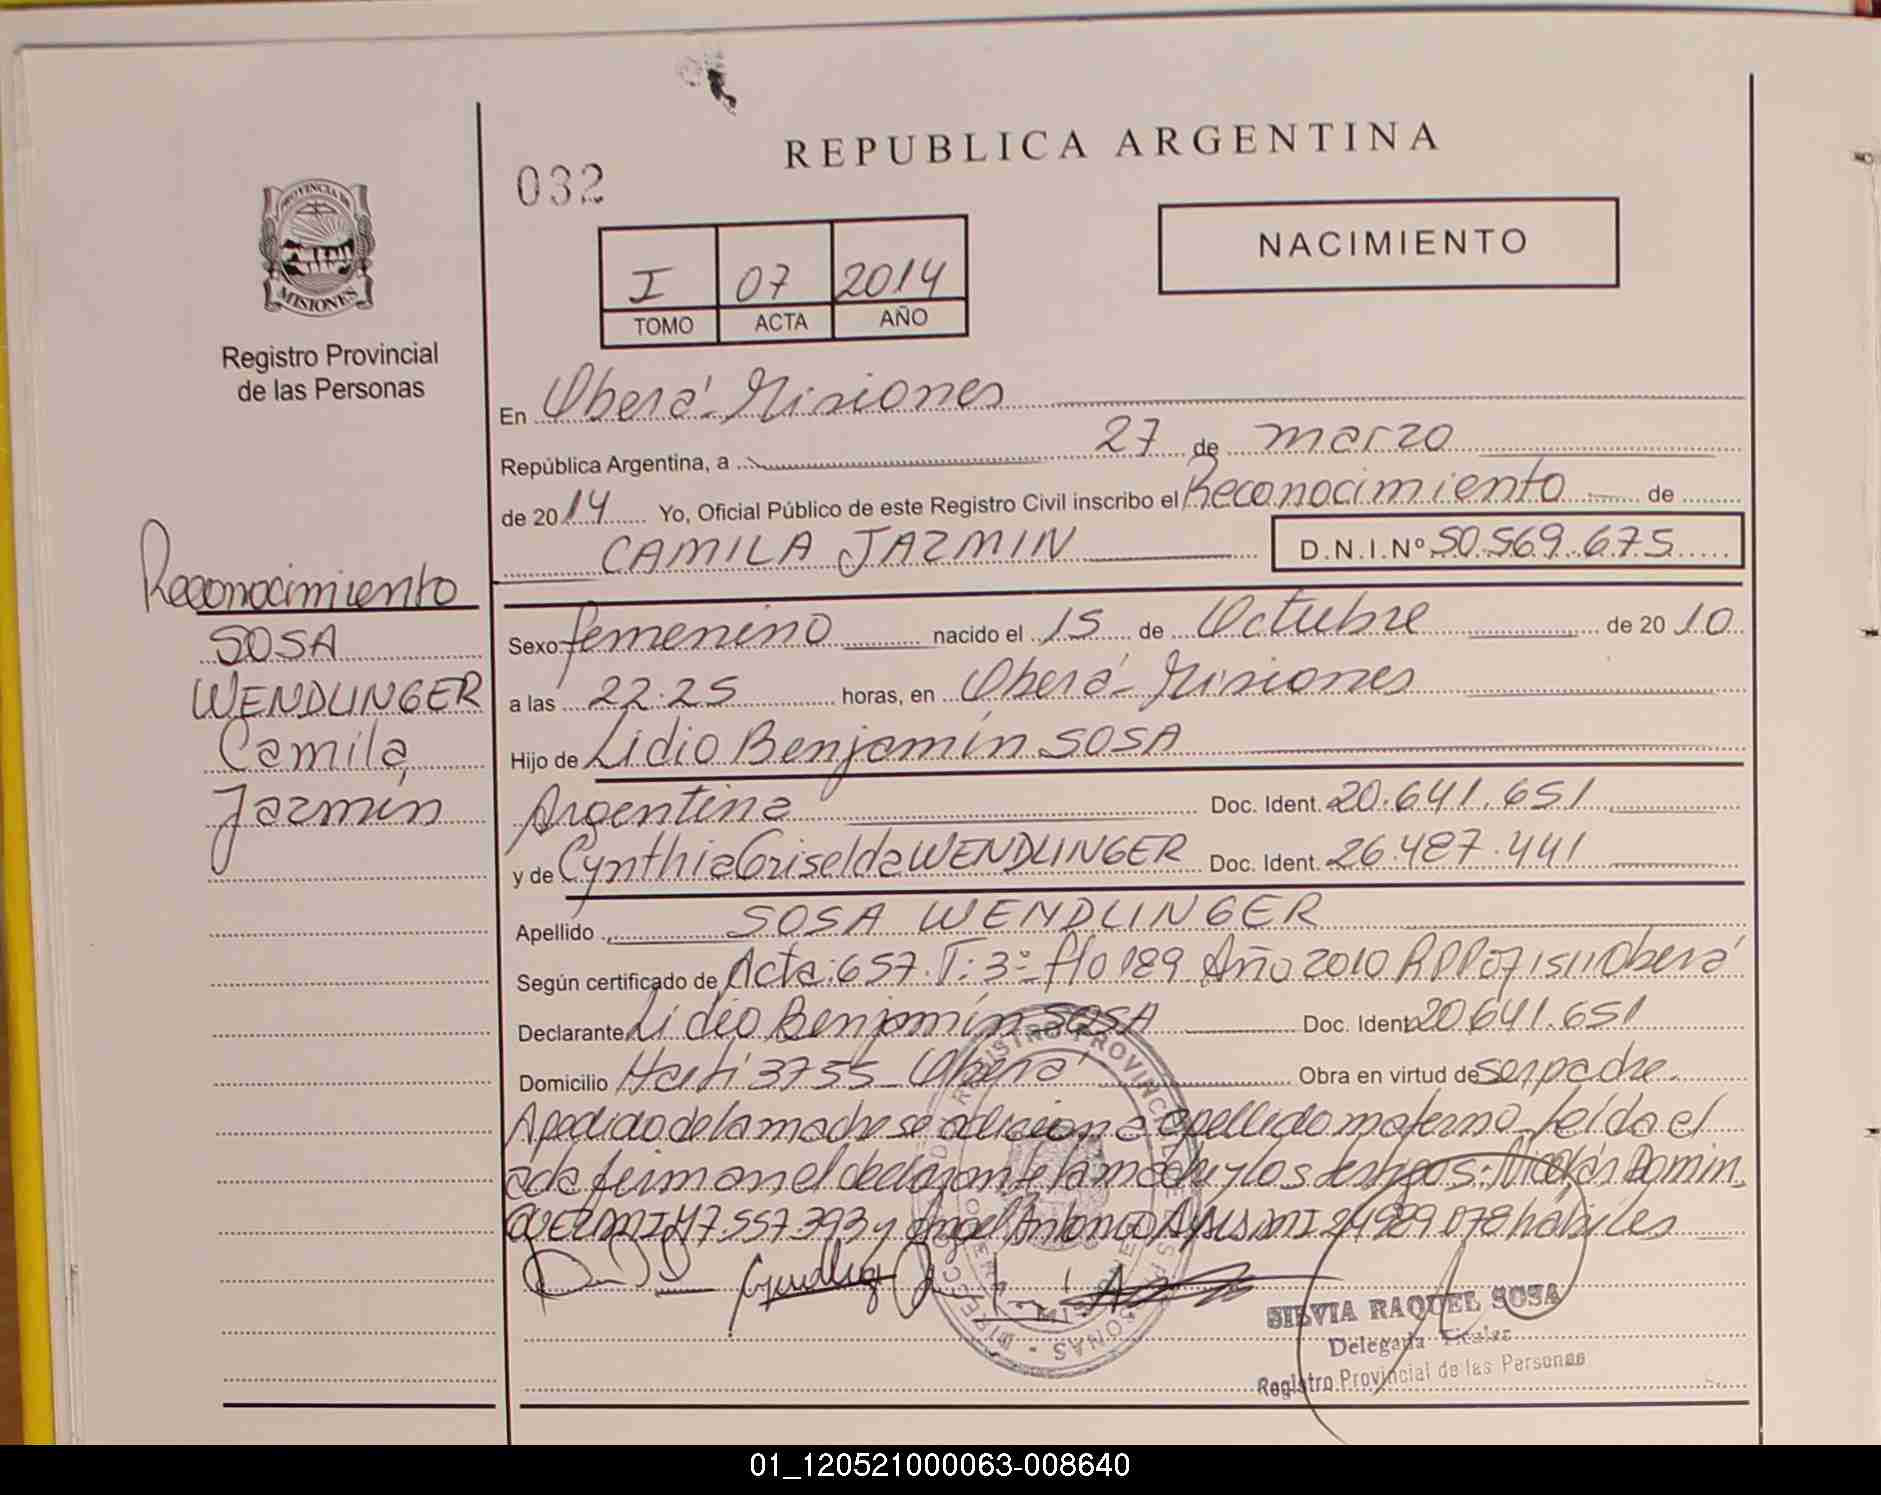 REPUBLICA ARGENTINA
032
NACIMIENTO
I 07 2014
TOMO ACTA AÑO
PROVINCIA DE
MISIONES
Registro Provincial
de las Personas
En Oberá - Misiones
República Argentina, a 27 de marzo
de 2014 Yo, Oficial Público de este Registro Civil inscribo el Reconocimiento de
CAMILA JAZMIN D.N.I.Nº 50.569.675
Reconocimiento
SOSA
WENDLINGER
Camila,
Jazmín
Sexo femenino nacido el 15 de Octubre de 2010
a las 22:25 horas, en Oberá - Misiones
Hijo de Lidio Benjamín SOSA
Argentina Doc. Ident. 20.641.651
y de Cynthia Griselda WENDLINGER Doc. Ident. 26.487.441
Apellido SOSA WENDLINGER
Según certificado de Acta: 657. T: 3º flo 189 Año 2010 Oberá
Declarante Lidio Benjamín SOSA Doc. Ident 20.641.651
Domicilio Haití 3755 - Oberá Obra en virtud de ser padre
A pedido de la madre se adiciona apellido materno - leída el
acta firman el declarante la madre y los testigos: Nicolás
MI 17.557.393 y Angel Antonio MI 24.989.078 hábiles
SILVIA RAQUEL SOSA
Delegada Titular
Registro Provincial de las Personas
01_120521000063-008640